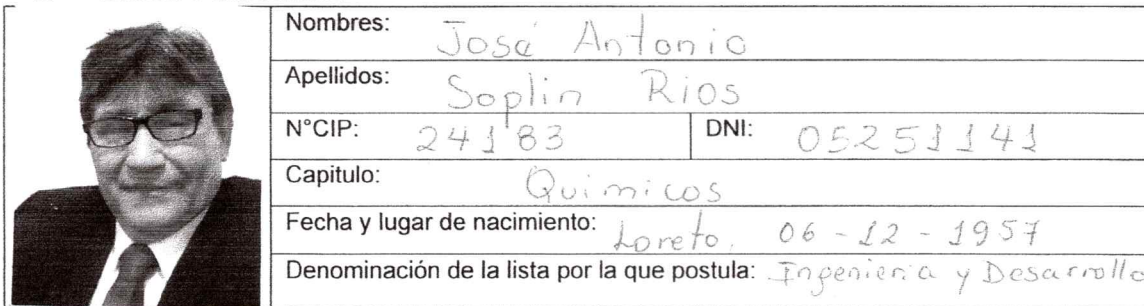 Nombres: José Antonio
Apellidos: Soplin Rios
N°CIP: 24183 DNI: 05251141
Capitulo: Quimicos
Fecha y lugar de nacimiento: Loreto, 06-12-1957
Denominación de la lista por la que postula: Ingenieria y Desarrollo